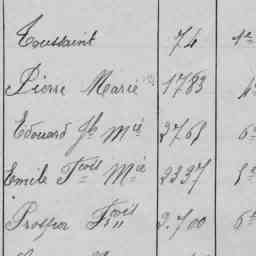 Toussaint 74 1e
Pierre Marie 1783
Edouard Jh Mie 2761 6e
Emile Fois Mie 2337 5e
Prosper Fois 2.700 6e